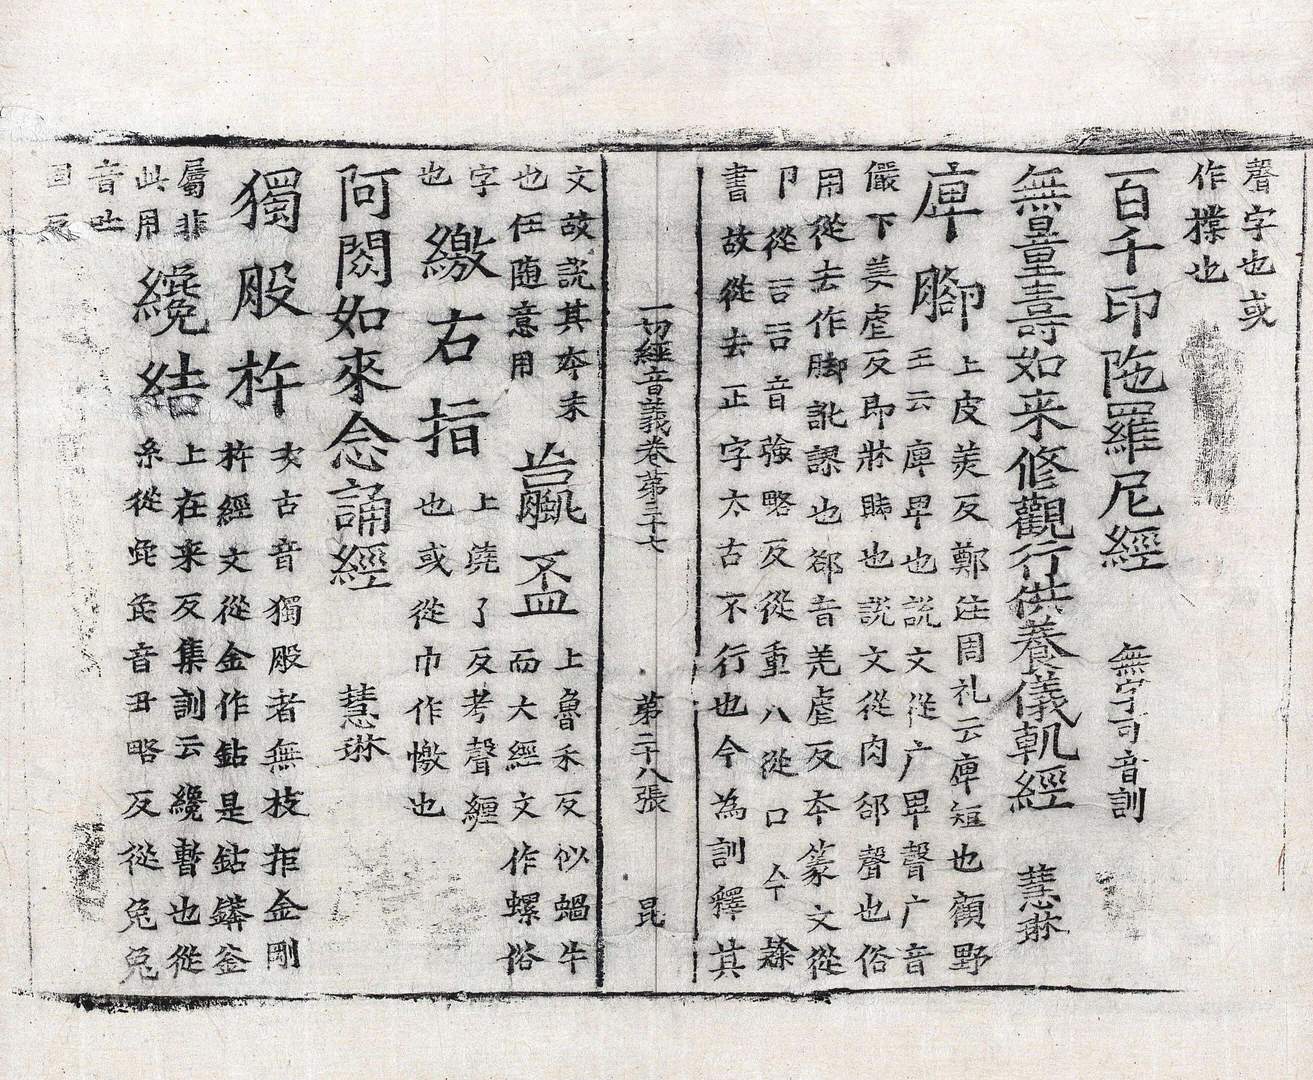 聲字也或
作㩧也
百千印陁羅尼經 無字可音訓
無量壽如来修觀行供養儀軌經 慧琳
庳脚 上皮羙反鄭注周礼云庳短也顧野
王云庳卑也説文從广卑聲广音
儼下羙虐反即牀脚也説文從肉郤聲也俗
用從去作脚訛謬也郤音羌虐反夲篆文從
卪從𧮫𧮫音強略反從重八從口今隸
書故從去正字太古不行也今為訓釋其
一切經音義卷苐三十七 苐二十八張 昆
文故説其夲末
也任随意用
蠃盃 上魯禾反似蝸牛
而大經文作螺俗
字
也
繳右指 上澆了反考聲纏
也或從巾作憿也
阿閦如來念誦經 慧琳
獨股杵 次古音獨股者無枝拒金剛
杵經文從金作鈷是鈷鏻釡
屬非
此用
纔結 上在来反集訓云纔暫也從
糸從㲋㲋音丑略反從兔兔
音吐
固反